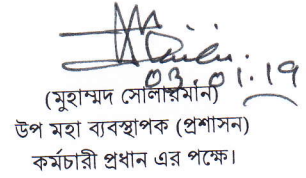 03.01.19
(মুহাম্মদ সোলায়মান)
উপ মহা ব্যবস্থাপক (প্রশাসন)
কর্মচারী প্রধান এর পক্ষে।